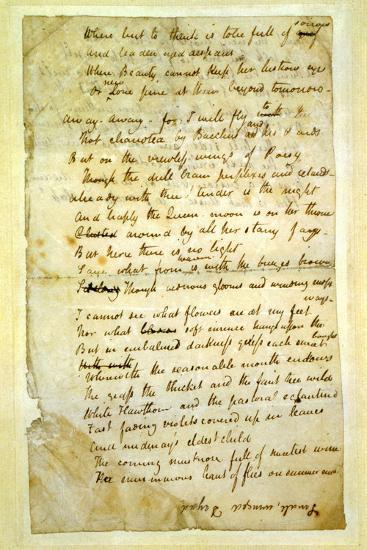 sorrow
Where but to think is to be full of grief
and leaden eyed despairs
Where Beauty cannot keep her lustrous eye
new
Or Love pine at them beyond tomorrow—
Away—away—for I will fly to thee
Not charioted by Bacchus and his Pards
But on the viewless wings of Poesy
Though the dull brain perplexes and retards—
Already with thee! tender is the night
And haply the Queen-moon is on her throne
Cluster'd around by all her starry fays—
But here there is no light
heaven
Save what from is with the breezes blown
Sidelong Though verdurous glooms and winding mossy
ways.
I cannot see what flowers are at my feet
Nor what blooms soft incense hangs upon the
boughs
But in embalmed darkness guess each sweet
With with
Wherewith the seasonable month endows
The grass the thicket and the fruit tree wild
White Hawthorn and the pastoral eglantine
Fast fading violets covered up in leaves
And midmay's eldest child
The coming muskrose full of sweetest wine
The murmurous haunt of flies on summer eves
Small, winged Dryad